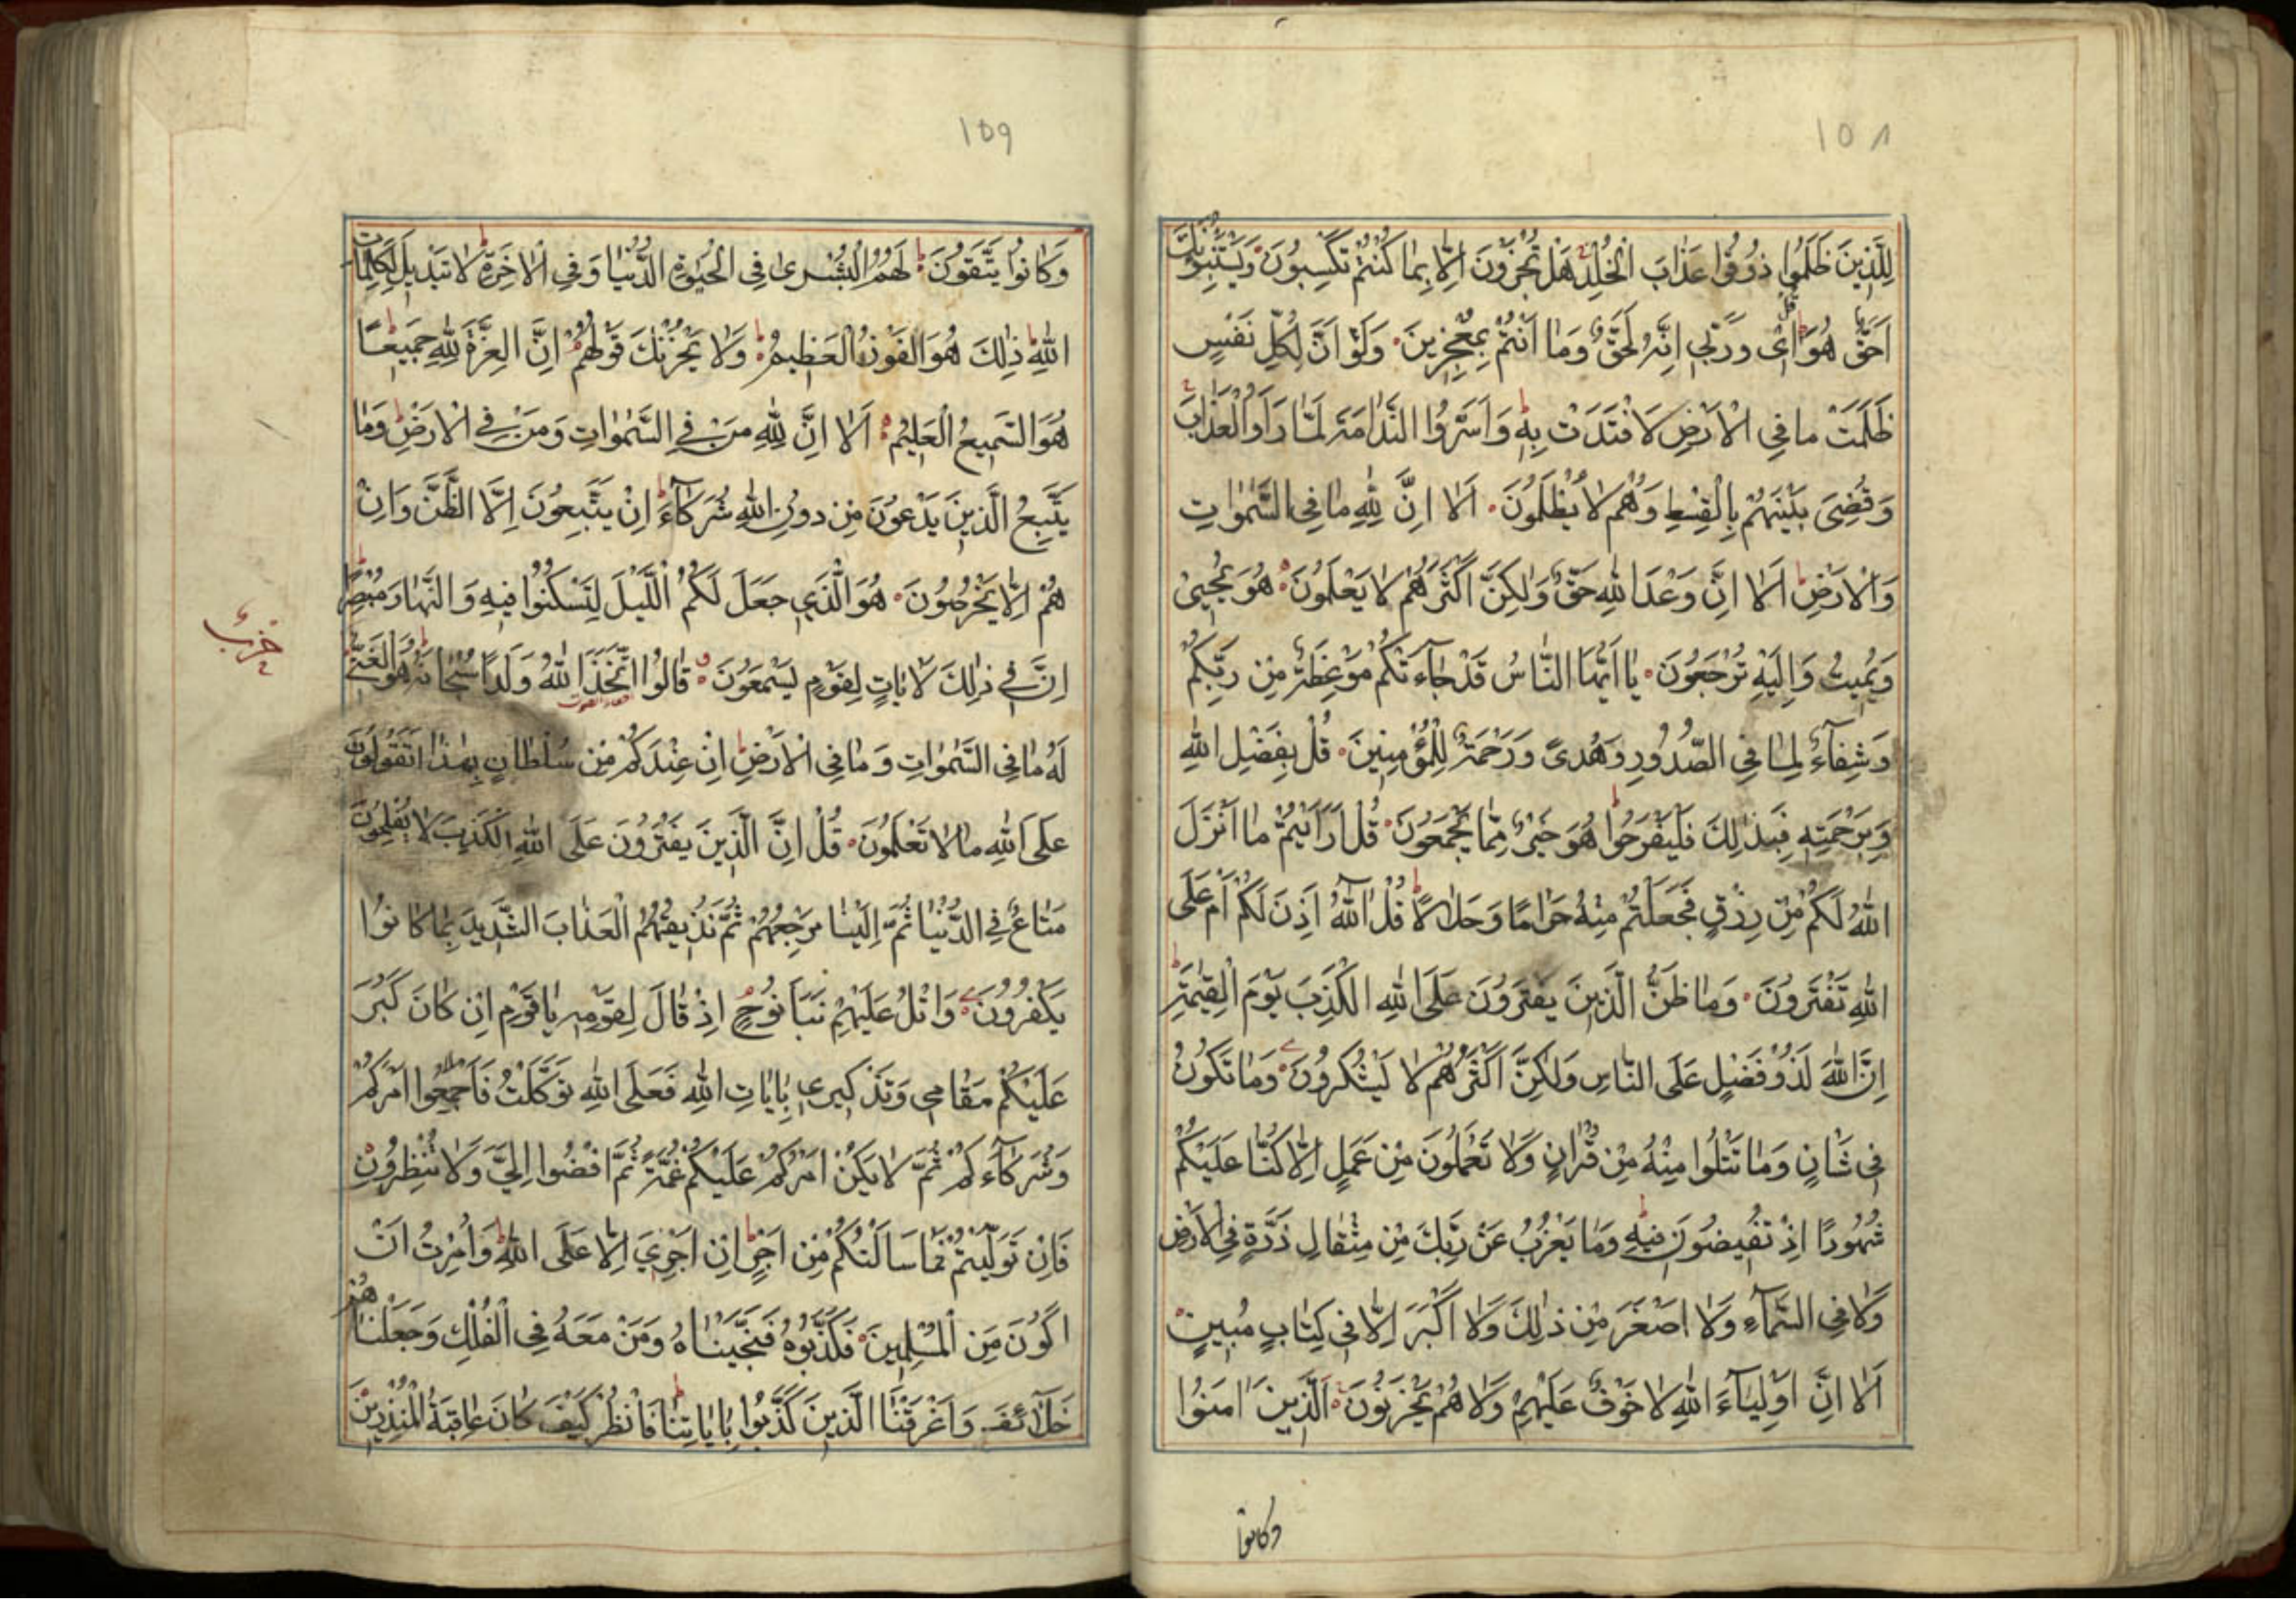 ١٥٨
لِلَّذِينَ ظَلَمُوا ذُوقُوا عَذَابَ الْخُلْدِ هَلْ تُجْزَوْنَ اِلَّا بِمَا كُنْتُمْ تَكْسِبُونَ وَيَسْتَنْبِؤُنَكَ
اَحَقٌّ هُوَ قُلْ اِى وَرَبِّى اِنَّهُ لَحَقٌّ وَمَا اَنْتُمْ بِمُعْجِزِينَ وَلَوْ اَنَّ لِكُلِّ نَفْسٍ
ظَلَمَتْ مَا فِى الْاَرْضِ لَافْتَدَتْ بِهِ وَاَسَرُّوا النَّدَامَةَ لَمَّا رَاَوُا الْعَذَابَ
وَقُضِىَ بَيْنَهُمْ بِالْقِسْطِ وَهُمْ لَا يُظْلَمُونَ اَلَا اِنَّ لِلّٰهِ مَا فِى السَّمٰوَاتِ
وَالْاَرْضِ اَلَا اِنَّ وَعْدَ اللّٰهِ حَقٌّ وَلٰكِنَّ اَكْثَرَهُمْ لَا يَعْلَمُونَ هُوَ يُحْيِىْ
وَيُمِيتُ وَاِلَيْهِ تُرْجَعُونَ يَا اَيُّهَا النَّاسُ قَدْ جَاۤءَتْكُمْ مَوْعِظَةٌ مِنْ رَبِّكُمْ
وَشِفَاۤءٌ لِمَا فِى الصُّدُورِ وَهُدىً وَرَحْمَةٌ لِلْمُؤْمِنِينَ قُلْ بِفَضْلِ اللّٰهِ
وَبِرَحْمَتِهِ فَبِذٰلِكَ فَلْيَفْرَحُوا هُوَ خَيْرٌ مِمَّا يَجْمَعُونَ قُلْ اَرَاَيْتُمْ مَا اَنْزَلَ
اللّٰهُ لَكُمْ مِنْ رِزْقٍ فَجَعَلْتُمْ مِنْهُ حَرَامًا وَحَلَالًا قُلْ آللّٰهُ اَذِنَ لَكُمْ اَمْ عَلَى
اللّٰهِ تَفْتَرُونَ وَمَا ظَنُّ الَّذِينَ يَفْتَرُونَ عَلَى اللّٰهِ الْكَذِبَ يَوْمَ الْقِيٰمَةِ
اِنَّ اللّٰهَ لَذُوْ فَضْلٍ عَلَى النَّاسِ وَلٰكِنَّ اَكْثَرَهُمْ لَا يَشْكُرُونَ وَمَا تَكُونُ
فِى شَانٍ وَمَا تَتْلُوا مِنْهُ مِنْ قُرْاٰنٍ وَلَا تَعْمَلُونَ مِنْ عَمَلٍ اِلَّا كُنَّا عَلَيْكُمْ
شُهُودًا اِذْ تُفِيضُونَ فِيهِ وَمَا يَعْزُبُ عَنْ رَبِّكَ مِنْ مِثْقَالِ ذَرَّةٍ فِى الْاَرْضِ
وَلَا فِى السَّمَاۤءِ وَلَا اَصْغَرَ مِنْ ذٰلِكَ وَلَا اَكْبَرَ اِلَّا فِى كِتَابٍ مُبِينٍ
اَلَا اِنَّ اَوْلِيَاۤءَ اللّٰهِ لَا خَوْفٌ عَلَيْهِمْ وَلَا هُمْ يَحْزَنُونَ اَلَّذِينَ اٰمَنُوا
وكانوا
١٥٩
وَكَانُوا يَتَّقُونَ لَهُمُ الْبُشْرٰى فِى الْحَيٰوةِ الدُّنْيَا وَفِى الْاٰخِرَةِ لَا تَبْدِيلَ لِكَلِمَاتِ
اللّٰهِ ذٰلِكَ هُوَ الْفَوْزُ الْعَظِيمُ وَلَا يَحْزُنْكَ قَوْلُهُمْ اِنَّ الْعِزَّةَ لِلّٰهِ جَمِيعًا
هُوَ السَّمِيعُ الْعَلِيمُ اَلَا اِنَّ لِلّٰهِ مَنْ فِى السَّمٰوَاتِ وَمَنْ فِى الْاَرْضِ وَمَا
يَتَّبِعُ الَّذِينَ يَدْعُونَ مِنْ دُونِ اللّٰهِ شُرَكَاۤءَ اِنْ يَتَّبِعُونَ اِلَّا الظَّنَّ وَاِنْ
هُمْ اِلَّا يَخْرُصُونَ هُوَ الَّذِى جَعَلَ لَكُمُ اللَّيْلَ لِتَسْكُنُوا فِيهِ وَالنَّهَارَ مُبْصِرًا
حزب
اِنَّ فِى ذٰلِكَ لَاٰيَاتٍ لِقَوْمٍ يَسْمَعُونَ قَالُوا اتَّخَذَ اللّٰهُ وَلَدًا سُبْحَانَهُ هُوَ الْغَنِىُّ
لَهُ مَا فِى السَّمٰوَاتِ وَمَا فِى الْاَرْضِ اِنْ عِنْدَكُمْ مِنْ سُلْطَانٍ بِهٰذَا اَتَقُولُونَ
عَلَى اللّٰهِ مَا لَا تَعْلَمُونَ قُلْ اِنَّ الَّذِينَ يَفْتَرُونَ عَلَى اللّٰهِ الْكَذِبَ لَا يُفْلِحُونَ
مَتَاعٌ فِى الدُّنْيَا ثُمَّ اِلَيْنَا مَرْجِعُهُمْ ثُمَّ نُذِيقُهُمُ الْعَذَابَ الشَّدِيدَ بِمَا كَانُوا
يَكْفُرُونَ وَاتْلُ عَلَيْهِمْ نَبَاَ نُوحٍ اِذْ قَالَ لِقَوْمِهِ يَا قَوْمِ اِنْ كَانَ كَبُرَ
عَلَيْكُمْ مَقَامِى وَتَذْكِيرِى بِاٰيَاتِ اللّٰهِ فَعَلَى اللّٰهِ تَوَكَّلْتُ فَاَجْمِعُوا اَمْرَكُمْ
وَشُرَكَاۤءَكُمْ ثُمَّ لَا يَكُنْ اَمْرُكُمْ عَلَيْكُمْ غُمَّةً ثُمَّ اقْضُوا اِلَيَّ وَلَا تُنْظِرُونِ
فَاِنْ تَوَلَّيْتُمْ فَمَا سَاَلْتُكُمْ مِنْ اَجْرٍ اِنْ اَجْرِيَ اِلَّا عَلَى اللّٰهِ وَاُمِرْتُ اَنْ
اَكُونَ مِنَ الْمُسْلِمِينَ فَكَذَّبُوهُ فَنَجَّيْنَاهُ وَمَنْ مَعَهُ فِى الْفُلْكِ وَجَعَلْنَاهُمْ
خَلَاۤئِفَ وَاَغْرَقْنَا الَّذِينَ كَذَّبُوا بِاٰيَاتِنَا فَانْظُرْ كَيْفَ كَانَ عَاقِبَةُ الْمُنْذَرِينَ